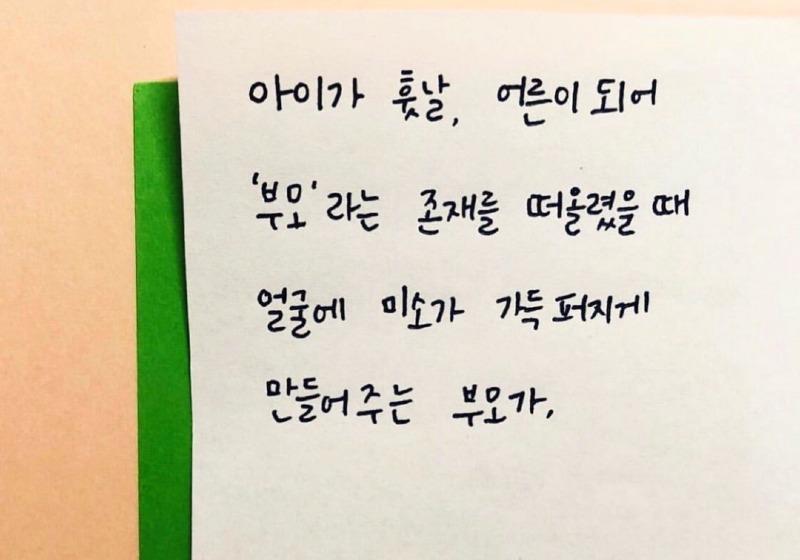 아이가 훗날, 어른이 되어
'부모'라는 존재를 떠올렸을 때
얼굴에 미소가 가득 퍼지게
만들어주는 부모가,